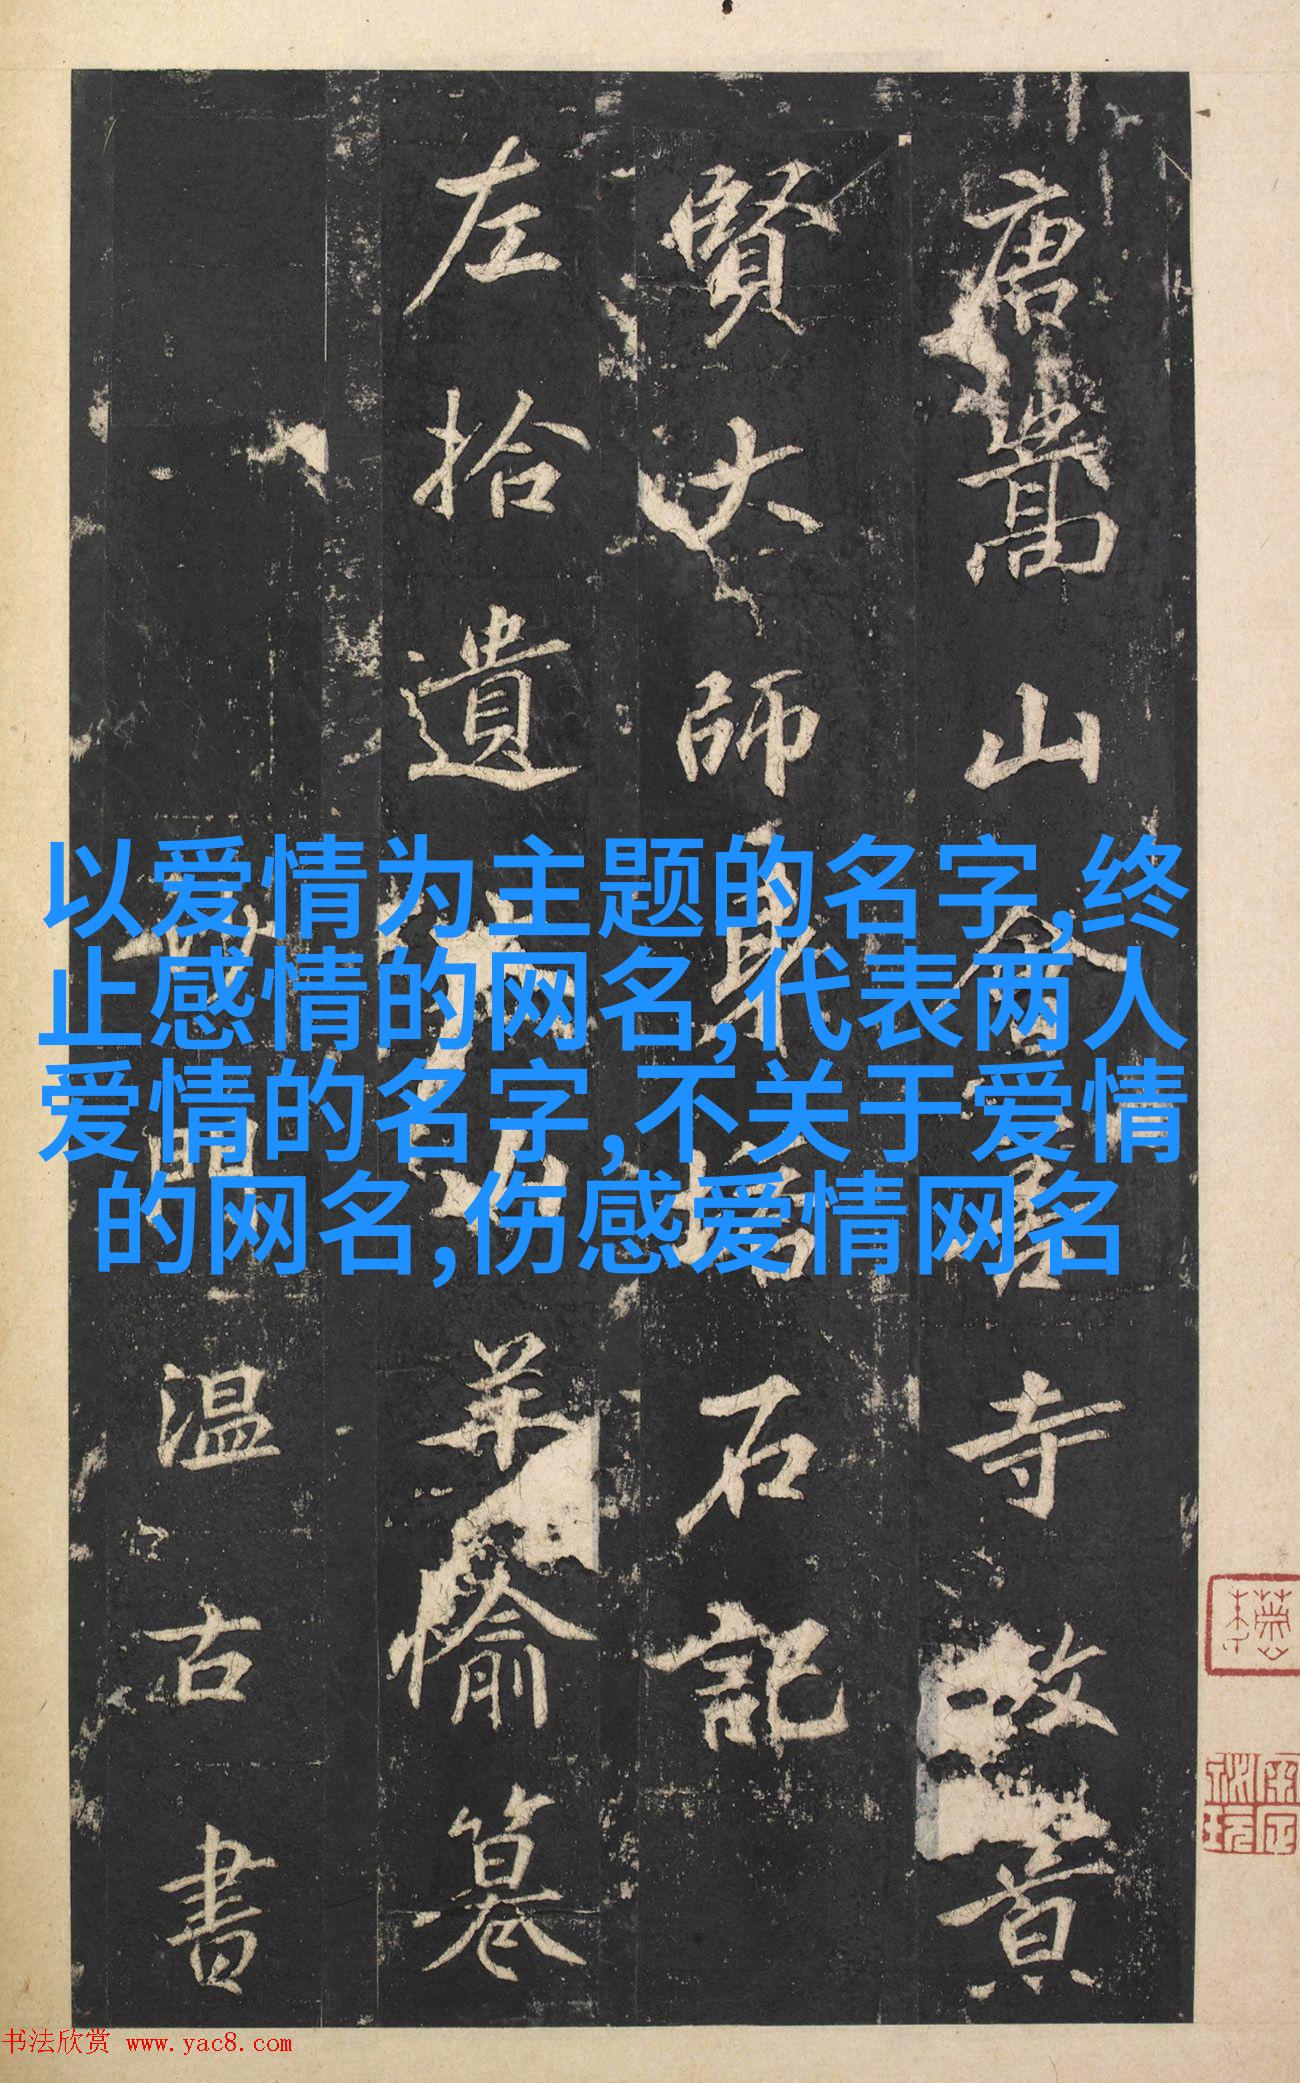 唐嵩山會善寺故景
賢大師身塔石記
左拾遺山羊愉纂
沙門溫古書
以爱情为主题的名字,终
止感情的网名,代表两人
爱情的名字,不关于爱情
的网名,伤感爱情网名
书法欣赏 www.yac8.com